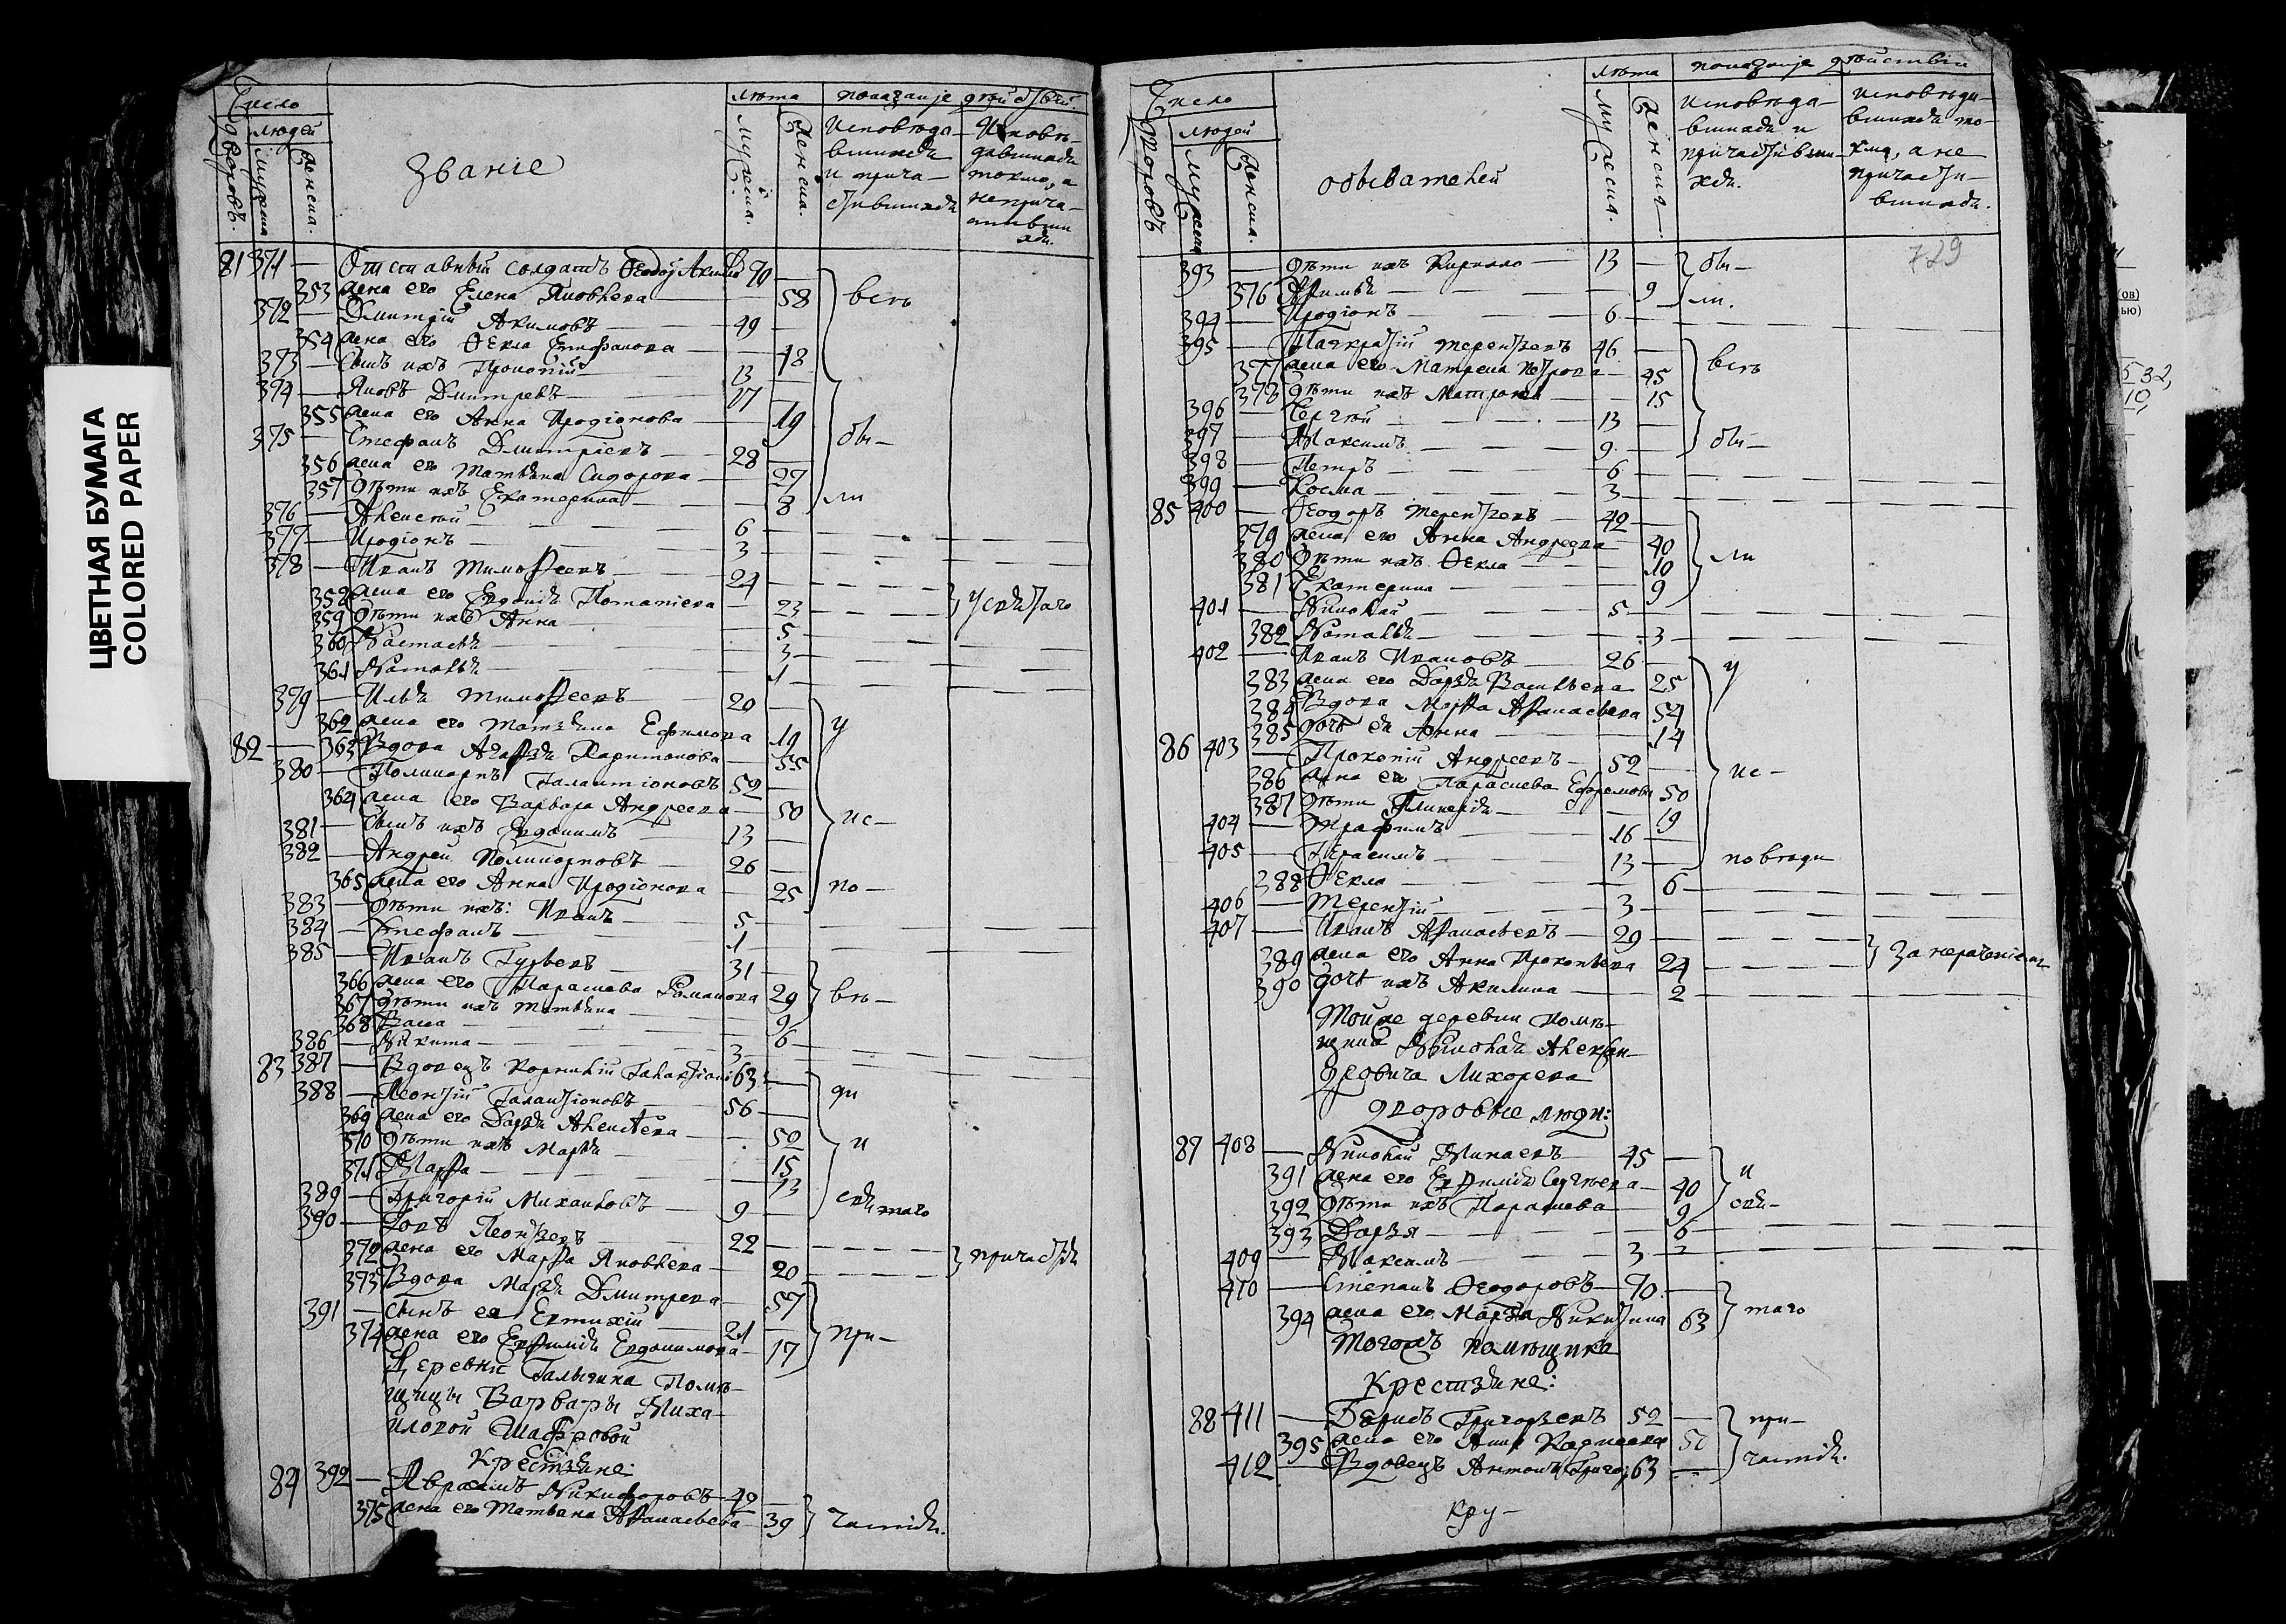 ЦВЕТНАЯ БУМАГА
COLORED PAPER
Число
дворовъ. людей
мужеска женска.
Званіе
лѣта
мужеска. женска.
показаніе дѣйствій.
Исповѣда-
вшихся
и прича-
стившихся
Исповѣ-
давшихся
токмо, а
неприча-
стивши
хся.
81 371 — Отставный солдатъ Ѳеодоръ Акимовъ 70 —
353 жена его Елена Яковлева — 58 весь
372 — Дмитрій Акимовъ 49 —
354 жена его Ѳекла Епифанова — 48
373 — Сынъ ихъ Прокопій 13
374 — Яковъ Дмитревъ 17
355 жена его Анна Иродіонова — 19
375 — Стефанъ Дмитріевъ 28 обы-
356 жена его Татіяна Сидорова — 27
357 дѣти ихъ Екатерина — 8 ли
376 — Алексѣй 6
377 — Иродіонъ 3
378 — Иванъ Тимоѳеевъ 24
358 жена его Евдокія Потапіева — 23 у святаго
359 дѣти ихъ Анна — 5
360 Настасья 3
361 Наталья 1
379 — Илья Тимоѳеевъ 20
362 жена его Татіяна Ефимова 19 у
82 — 363 Вдова Агафья Харитонова — 55
380 — Поликарпъ Галактіоновъ 52
364 жена его Варвара Андреева — 50 ис-
381 — Сынъ ихъ Евдокимъ 13
382 — Андрей Поликарповъ 26
365 жена его Анна Иродіонова — 25 по-
383 — дѣти ихъ: Иванъ 5
384 — Стефанъ 1
385 — Иванъ Гурьевъ 31
366 жена его Парасковья Романова 29 вѣ-
367 дѣти ихъ Татіяна 9
368 Васса 6
386 — Никита 3
83 387 — Вдовецъ Корнилій Галактіоновъ 63 ди
388 — Леонтій Галактіоновъ 56
369 жена его Дарья Алексѣева — 52 и
370 дѣти ихъ Марья 15
371 Марфа 13
389 — Григорій Михайловъ 9 святаго
390 — Яковъ Леонтьевъ 22
372 жена его Марфа Яковлева 20 причастія
373 Вдова Марья Дмитрева — 57
391 — сынъ ея Евтихій 21 при-
374 жена его Евфимія Евдокимова 17
Деревни Галыгина Помѣ-
щицы Варвары Миха-
иловой Шафровой
Крестьяне:
84 392 — Авраамъ Никифоровъ 42
375 жена его Татьяна Аѳанасьева — 39 частія.
Число
дворовъ людей
мужеска женска.
обывателей
лѣта
мужеска. женска.
показаніе дѣйствій
исповѣда-
вшихся и
причастивши-
хся.
исповѣда-
вшихся то-
кмо, а не
причасти-
вшихся.
729
393 — дѣти ихъ Кирилло 13 — обы-
376 Афимья 9 ли.
394 — Иродіонъ 6
395 — Панкратій Терентьевъ 46 —
377 жена его Матрена Петрова 45 весь
378 дѣти ихъ Матрона 15
396 — Сергѣй 13
397 — Максимъ 9 обы-
398 — Петръ 6
399 — Косма 3
85 400 — Ѳеодоръ Терентьевъ 42
379 жена его Анна Андреева 40 ли
380 дѣти ихъ Ѳекла 10
381 Екатерина 9
401 — Николай 5
382 Наталья 3
402 — Иванъ Ивановъ 26 у
383 жена его Дарья Васильева 25
384 Вдова Марфа Аѳанасьева 54
385 дочь ея Анна 14
86 403 — Прокопій Андреевъ 52 ис-
386 жена его Парасковья Ефремова 50
387 дѣти Гликерія 19
404 — Трофимъ 16
405 — Герасимъ 13 повѣди
388 Ѳекла 6
406 — Терентій 3
407 — Иванъ Аѳанасьевъ 29
389 жена его Анна Прокопьева 24 За нераченіемъ
390 дочь ихъ Акилина 2
Тойже деревни помѣ-
щика Николая Алексан-
дровича Лихорева
дворовые люди:
87 408 — Николай Минаевъ 45 и
391 жена его Евфимія Сергѣева 40
392 дѣти ихъ Парасковья 9 свя-
393 Дарья 6
409 — Максимъ 3
410 — Степанъ Ѳеодоровъ 70
394 жена его Марья Никитина 63 таго
Тогожъ помѣщика
Крестьяне:
88 411 — Борисъ Григорьевъ 52 при-
395 жена его Анна 50
412 — Вдовецъ Антонъ Григор: 63 частія.